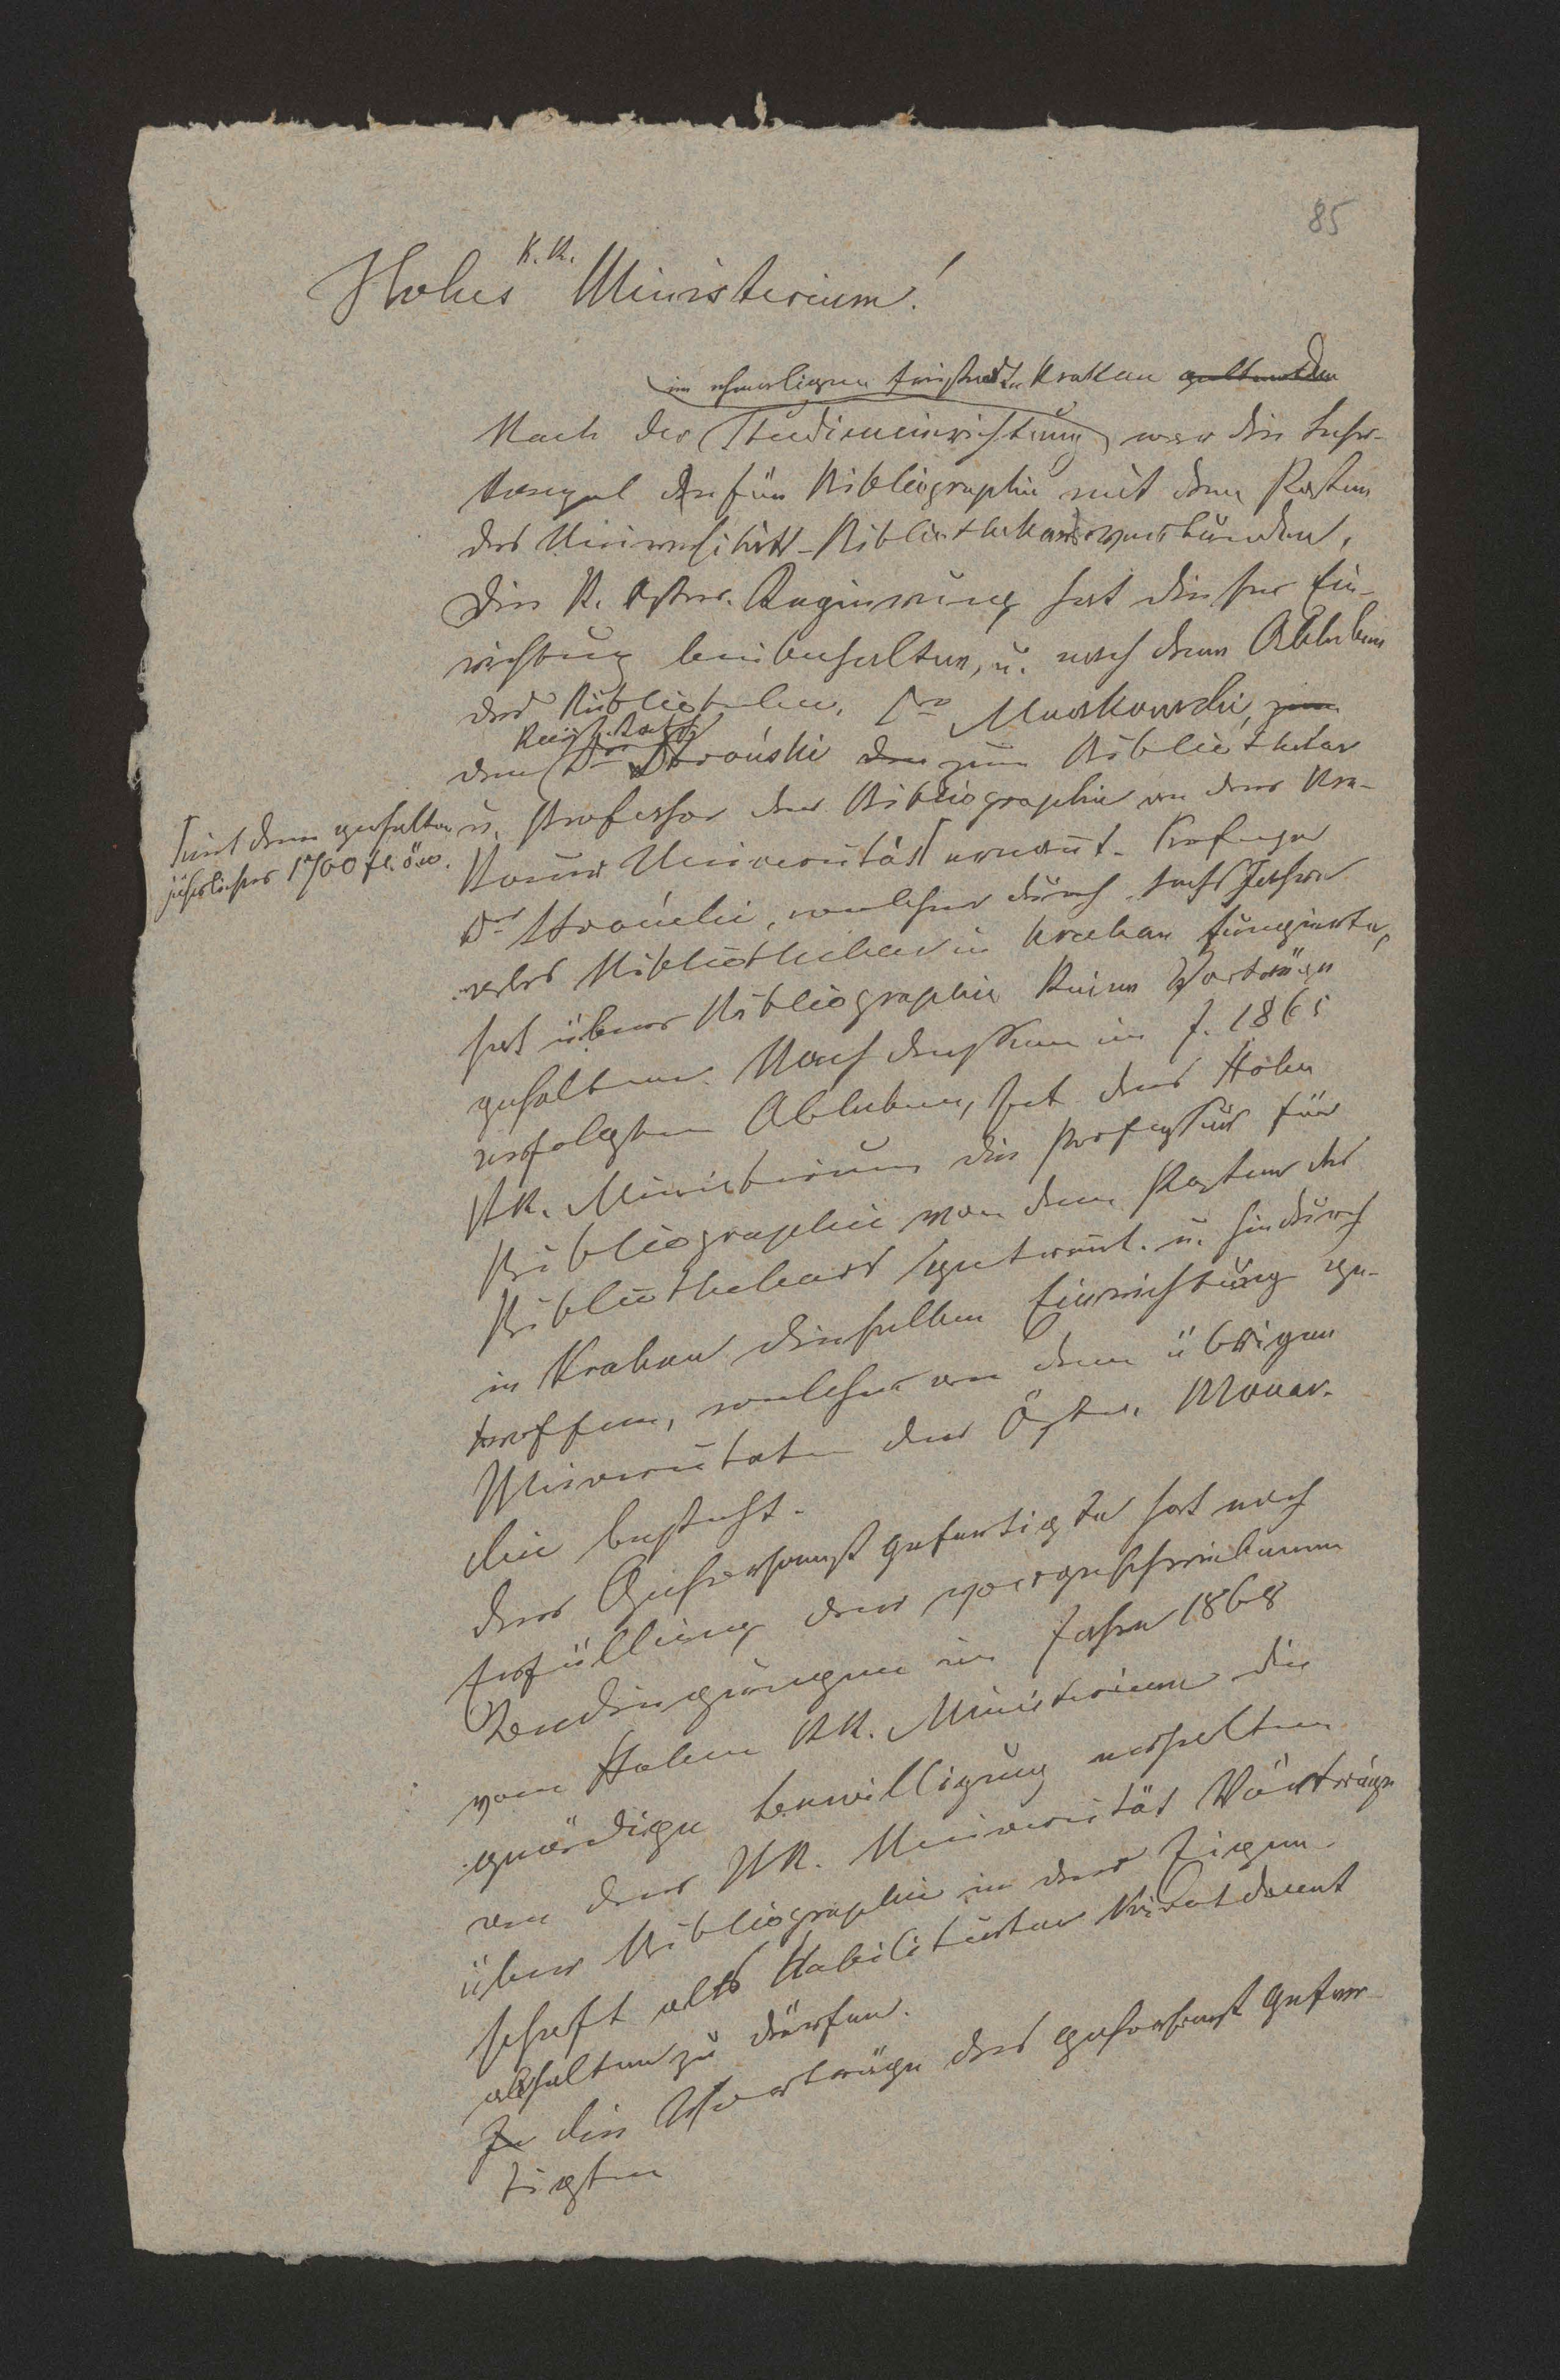 85
Hohes K.K. Ministerium!
im ehemaligen Freistaate Krakau geltenden
Nach der Studieneinrichtung war die Lehr-
kanzel der für Bibliographie mit dem Posten
des Universitäts-Bibliothekars verbunden.
Die K. Österr. Regierung hat diese Ein-
richtung beibehalten, u. nach dem Ableben
des Bibliothekar. Dr Muczkowski, zum
dem Dr Stroński den zum Bibliothekar
u. Professor der Bibliographie an der Kra-
kauer Universität ernannt. Professor
mit dem Gehalte
jährlicher 1700 fl. ö.w.
Dr Stroński, welcher durch sechs Jahre
als Bibliothekar in Krakau fungierte,
hat über Bibliographie keine Vorträge
gehalten. Nach dessen im J. 1865
erfolgten Ableben, hat das Hohe
KK. Ministerium die Professur für
Bibliographie von dem Posten des
Bibliothekars getrennt u. hiedurch
in Krakau dieselbe Einrichtung ge-
troffen, welche an den übrigen
Universitaten der Öster. Monar-
chie besteht.
Der Gehorsamst gefertigte hat nach
Erfüllung der vorgeschriebenen
Bedingungen im Jahre 1868
vom Hohen KK. Ministerium die
gnädige Bewilligung erhalten
an der KK. Universität Vorträge
über Bibliographie in der Eigen-
schaft als Habilitirter Privatdocent
abhalten zu dürfen.
Zu die Vorträge des gehorsamst Gefer-
tigten